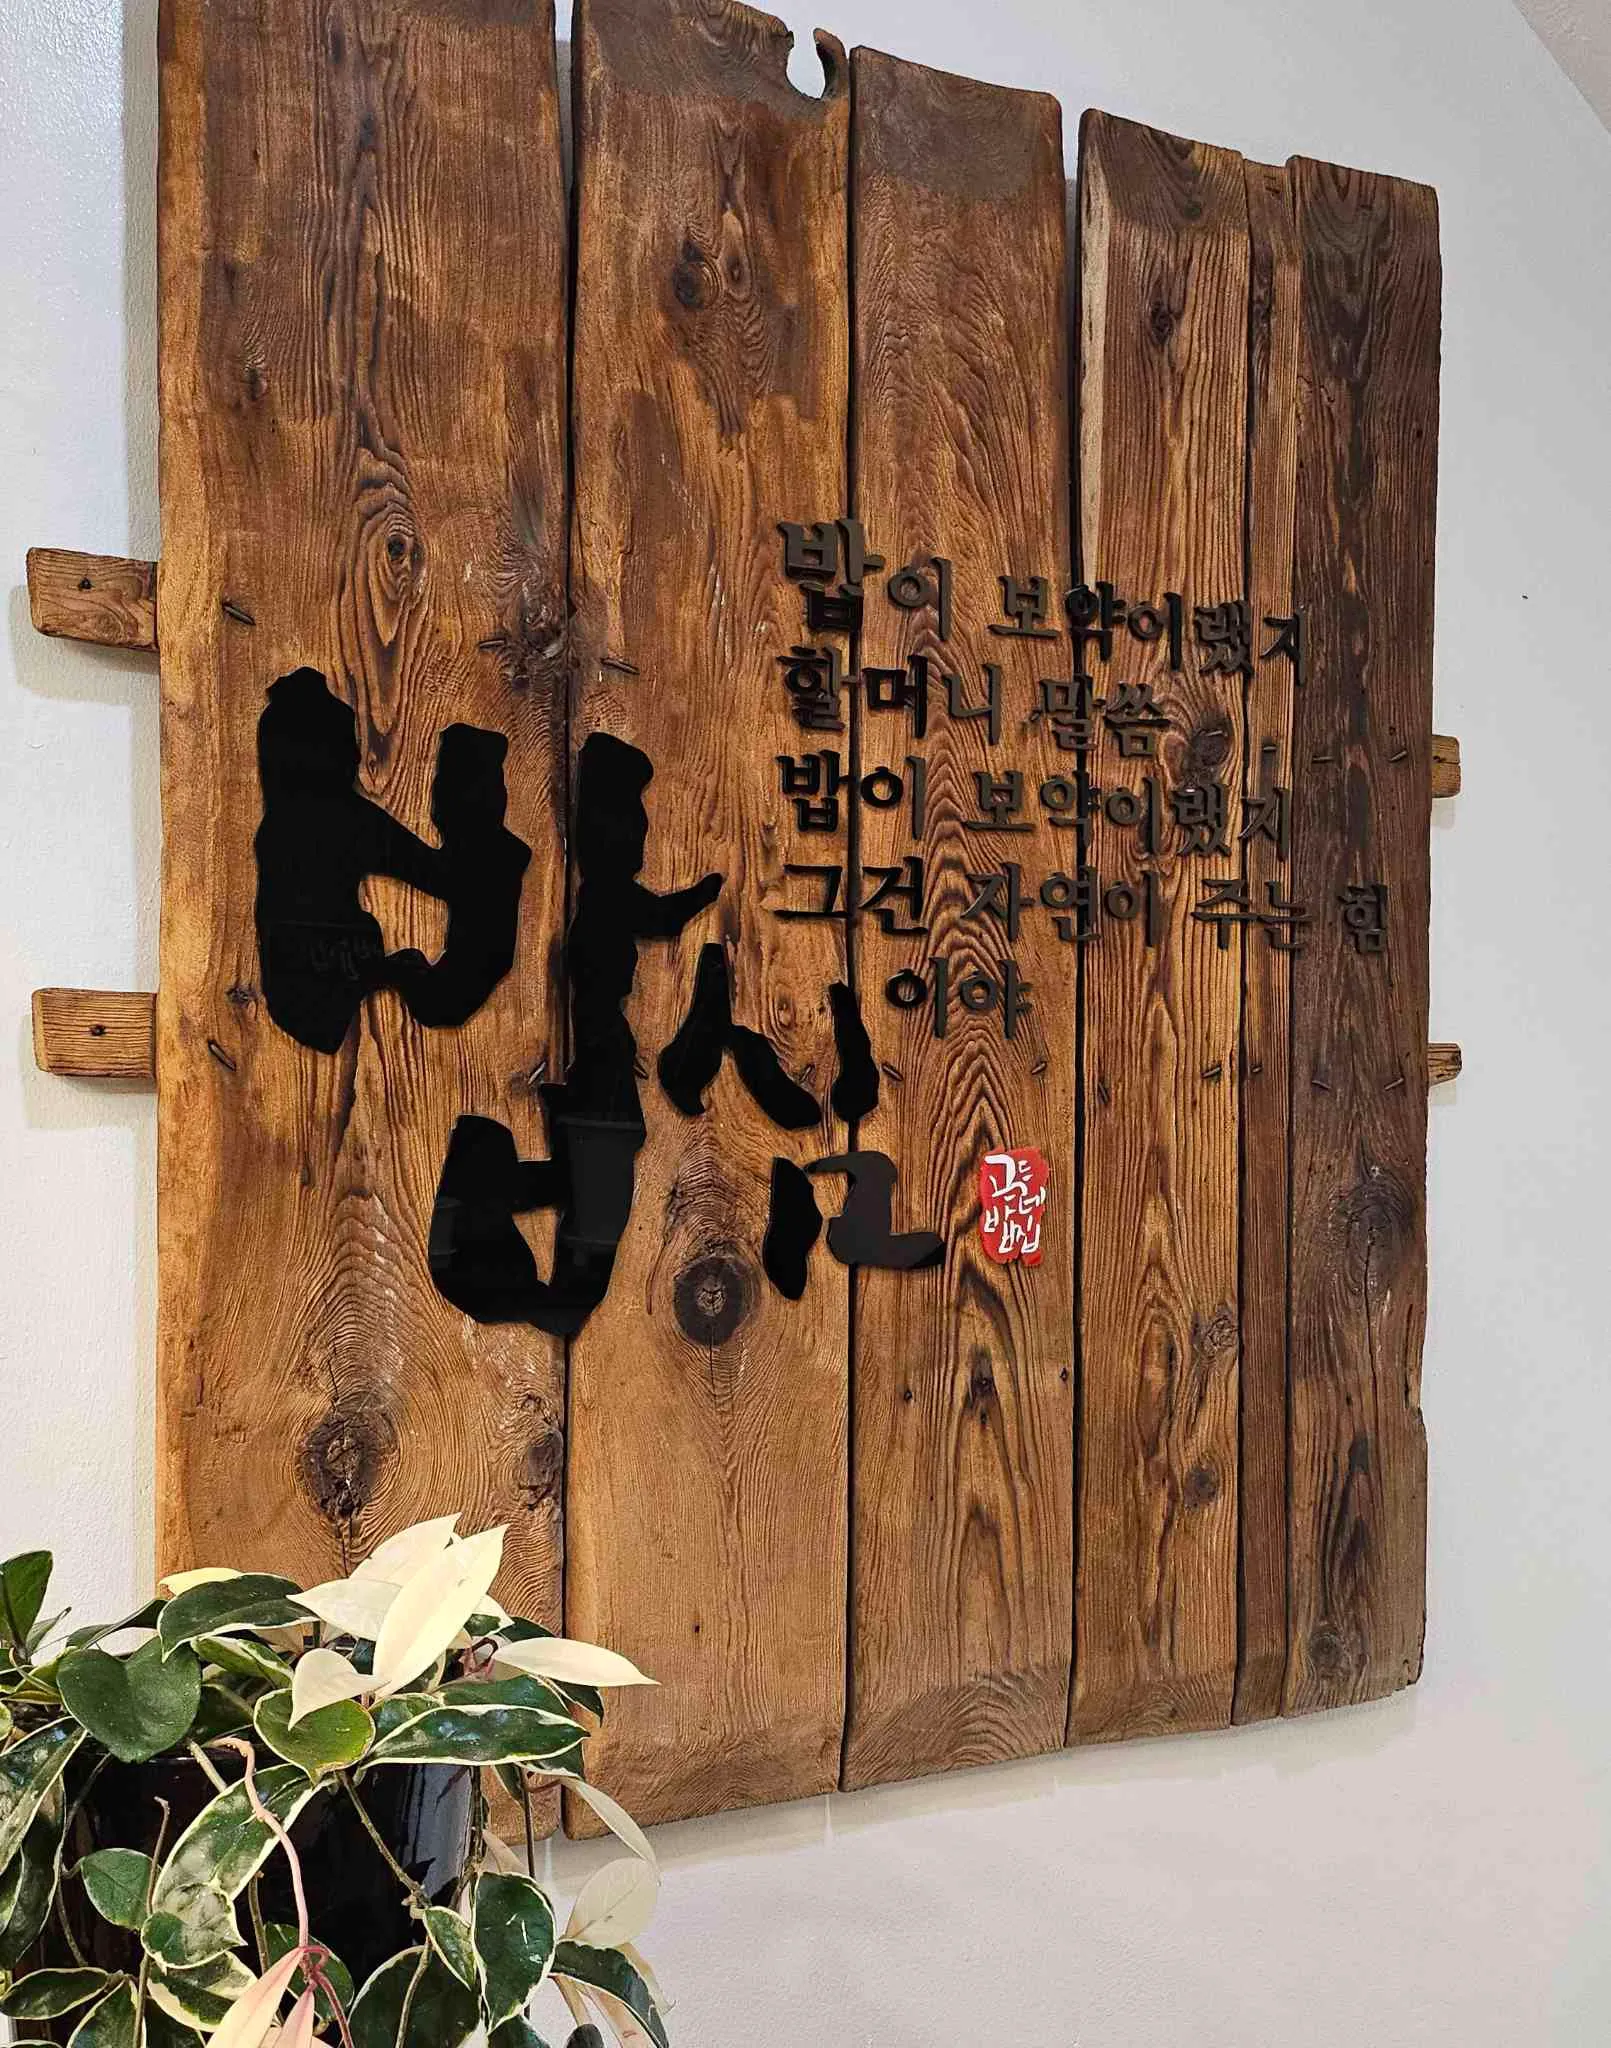 밥심
밥이 보약이랬지
할머니 말씀
밥이 보약이랬지
그건 자연이 주는 힘
이야
곤드레
밥집